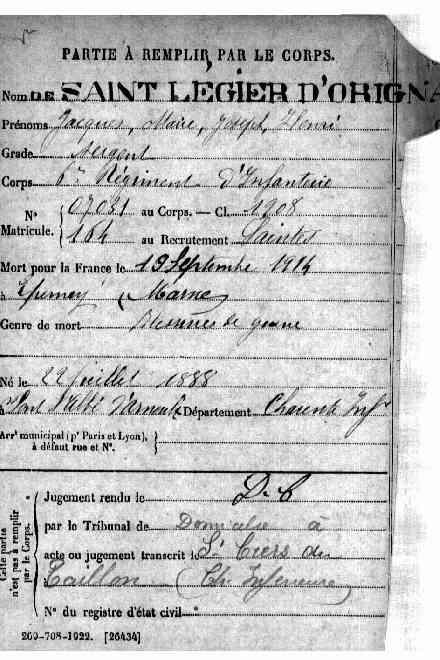 PARTIE À REMPLIR PAR LE CORPS.
Nom DE SAINT LEGIER D'ORIGNA
Prénoms Jacques, Marie, Joseph, Henri
Grade Sergent
Corps 6me Régiment d'Infanterie
Nº Matricule. 07031 au Corps. — Cl. 1908
164 au Recrutement Saintes
Mort pour la France le 19 Septembre 1914
à Epernay (Marne)
Genre de mort Blessures de guerre
Né le 22 juillet 1888
à Pont l'Abbé d'Arnoult Département Charente Infre
Arrt municipal (pr Paris et Lyon),
à défaut rue et Nº.
Cette partie n'est pas à remplir par le Corps.
Jugement rendu le D. C
par le Tribunal de Domicilié à
acte ou jugement transcrit le St Ciers du
Taillon (Ch. Inférieure)
Nº du registre d'état civil
260-708-1922. [26434]